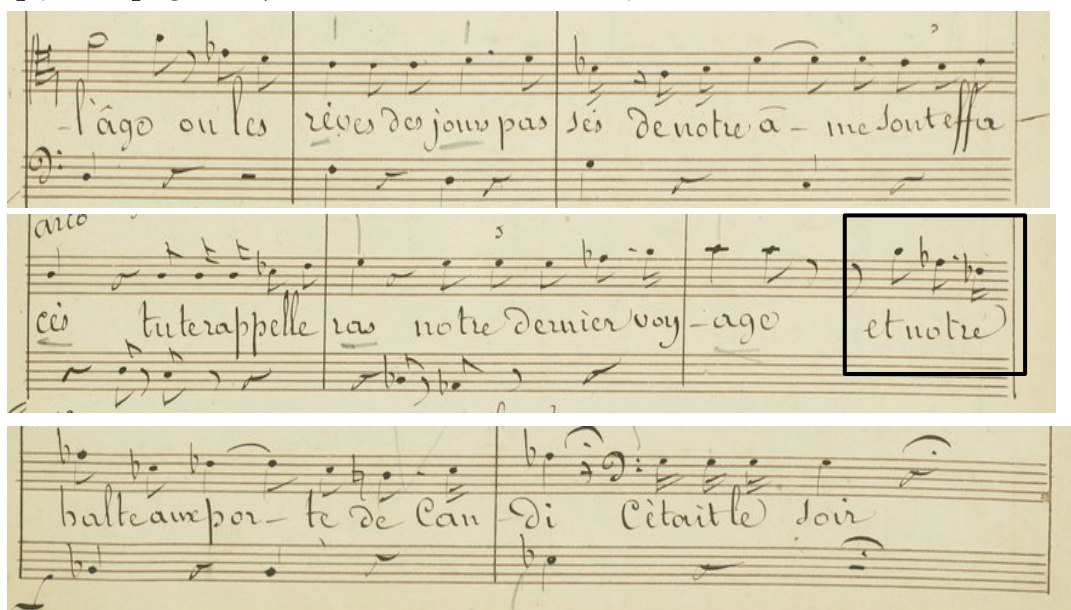 -l'âge ou les rêves des jours pas sés de notre â - me sont effa
arco
cés tu te rappelle ras notre dernier voy - age et notre
halte aux por - te de Can - di C'était le soir